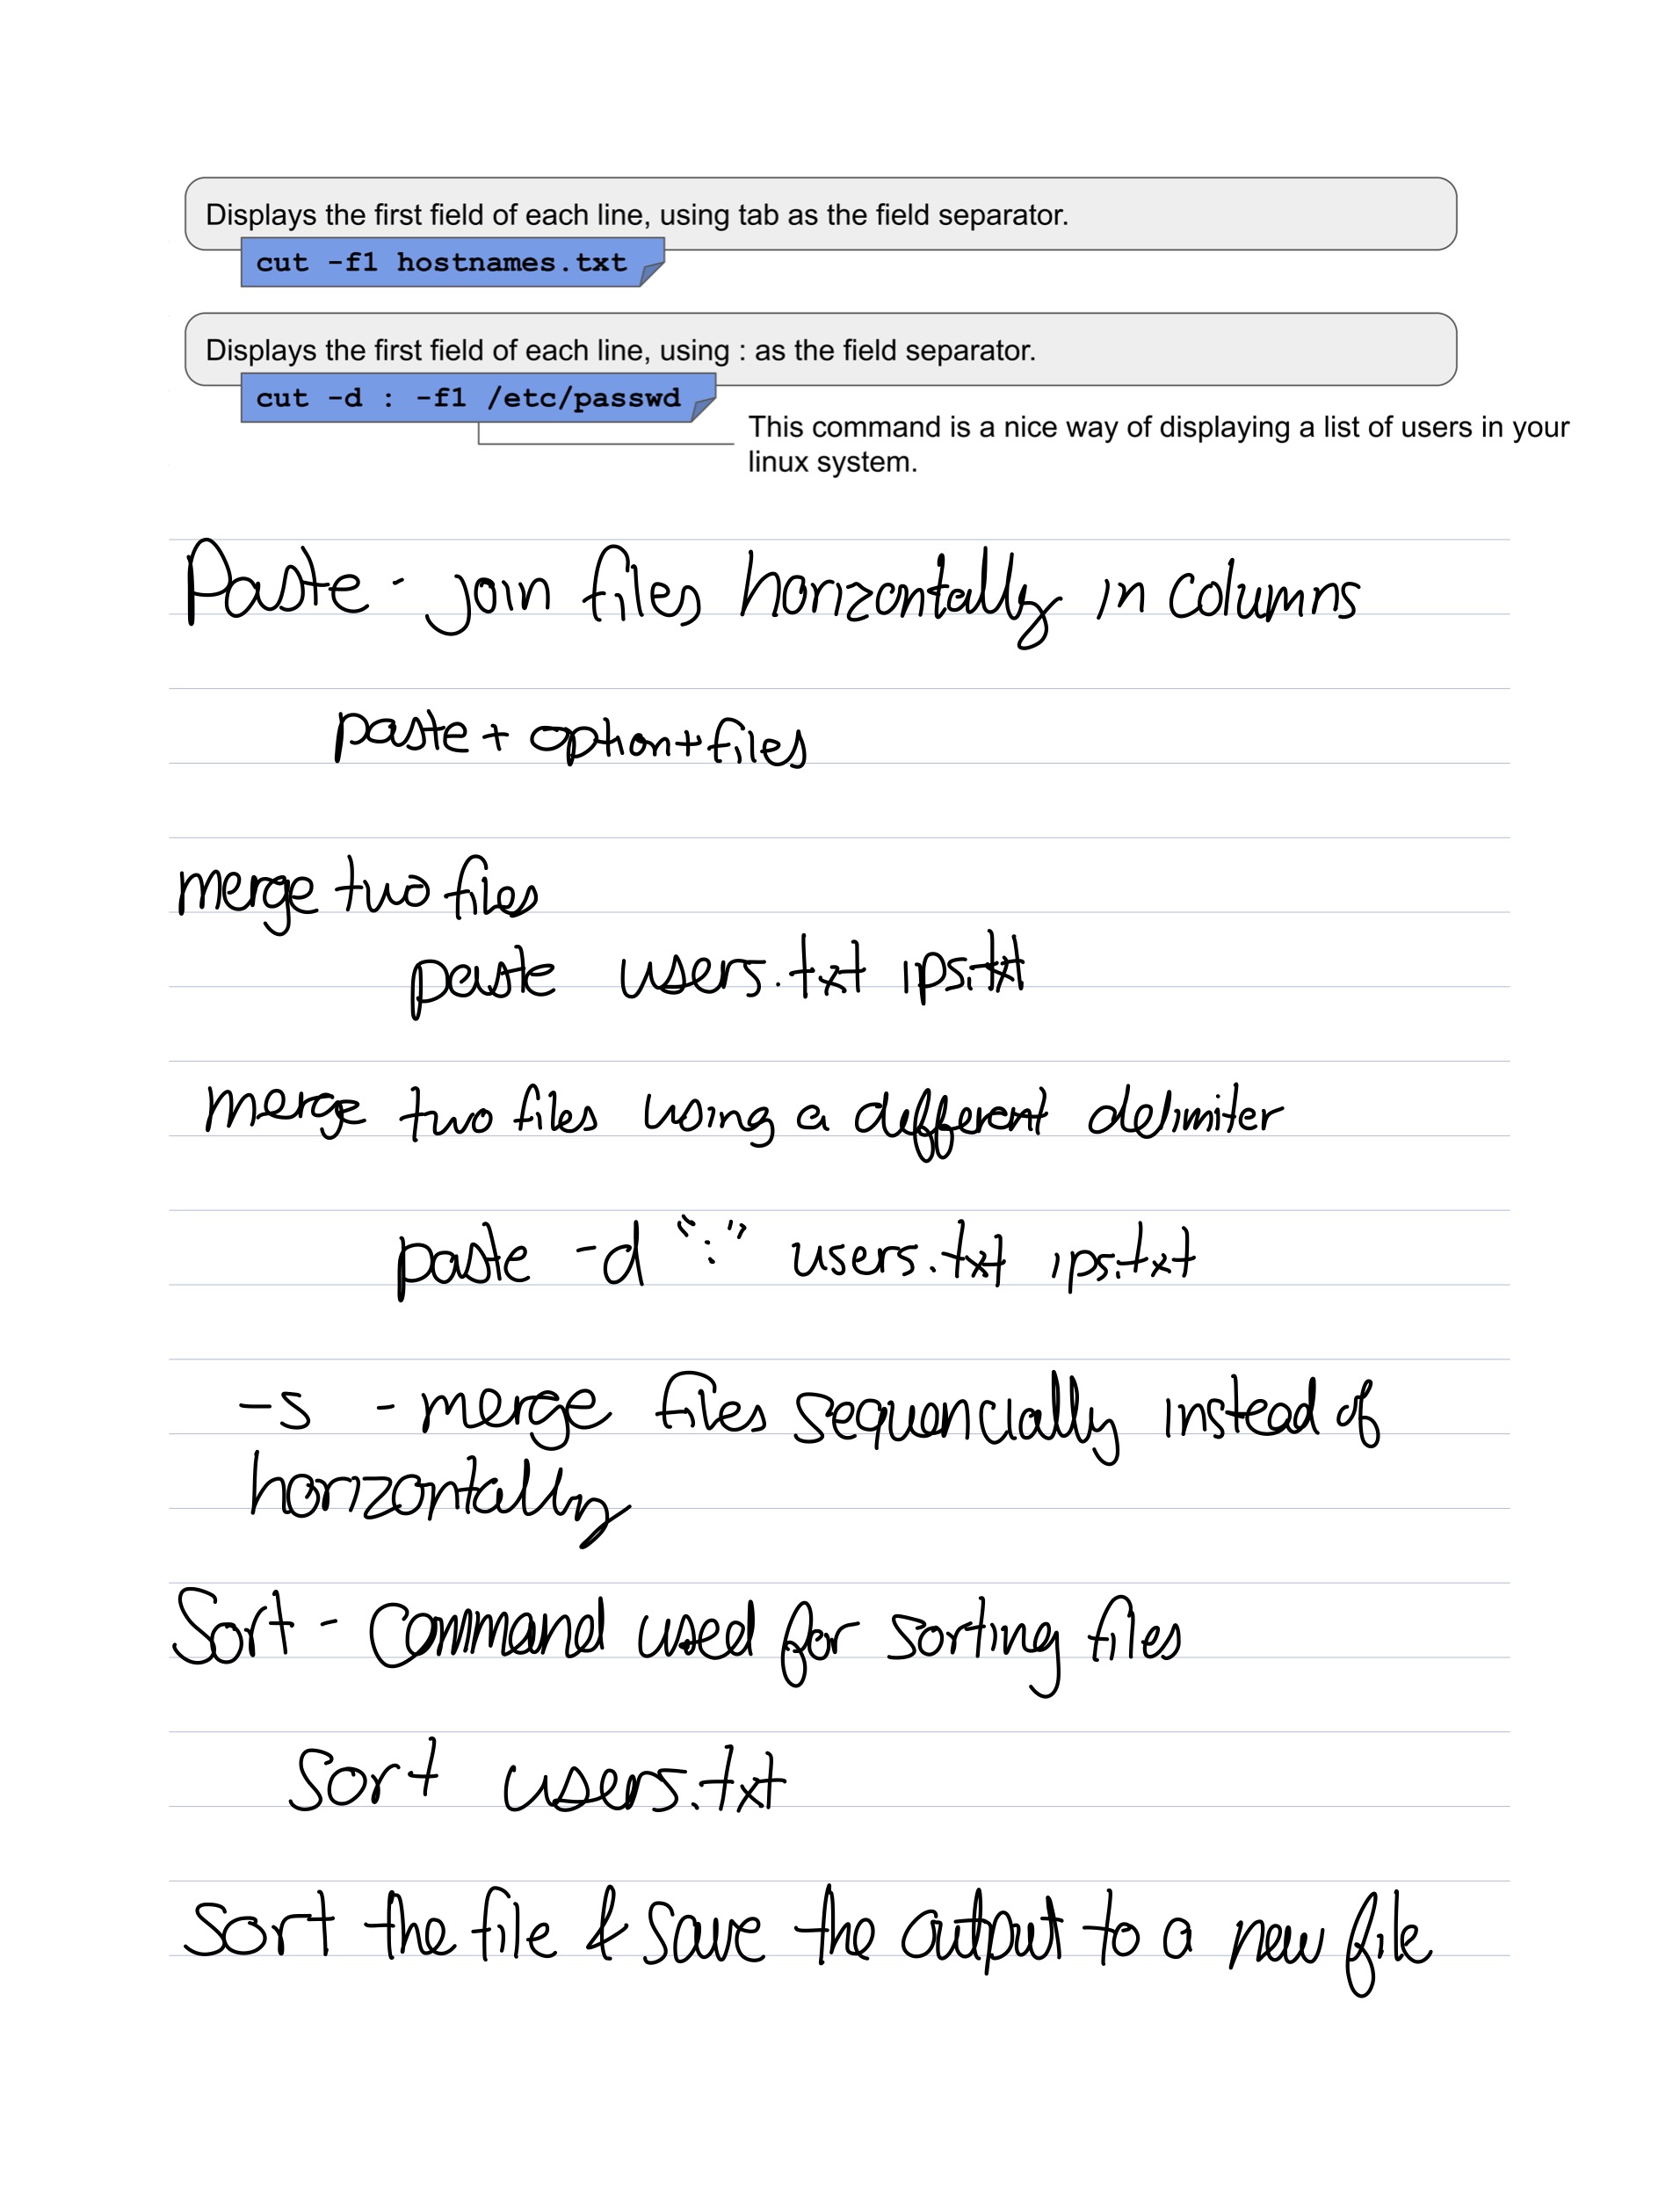 Displays the first field of each line, using tab as the field separator.
cut -f1 hostnames.txt
Displays the first field of each line, using : as the field separator.
cut -d : -f1 /etc/passwd
This command is a nice way of displaying a list of users in your
linux system.
Paste - join files horizontally in columns
paste + option + files
merge two files
paste users.txt ips.txt
merge two files using a different delimiter
paste -d ":" users.txt ips.txt
-s - merge files sequencially instead of
horizontally
Sort - Command used for sorting files
Sort users.txt
sort the file & save the output to a new file